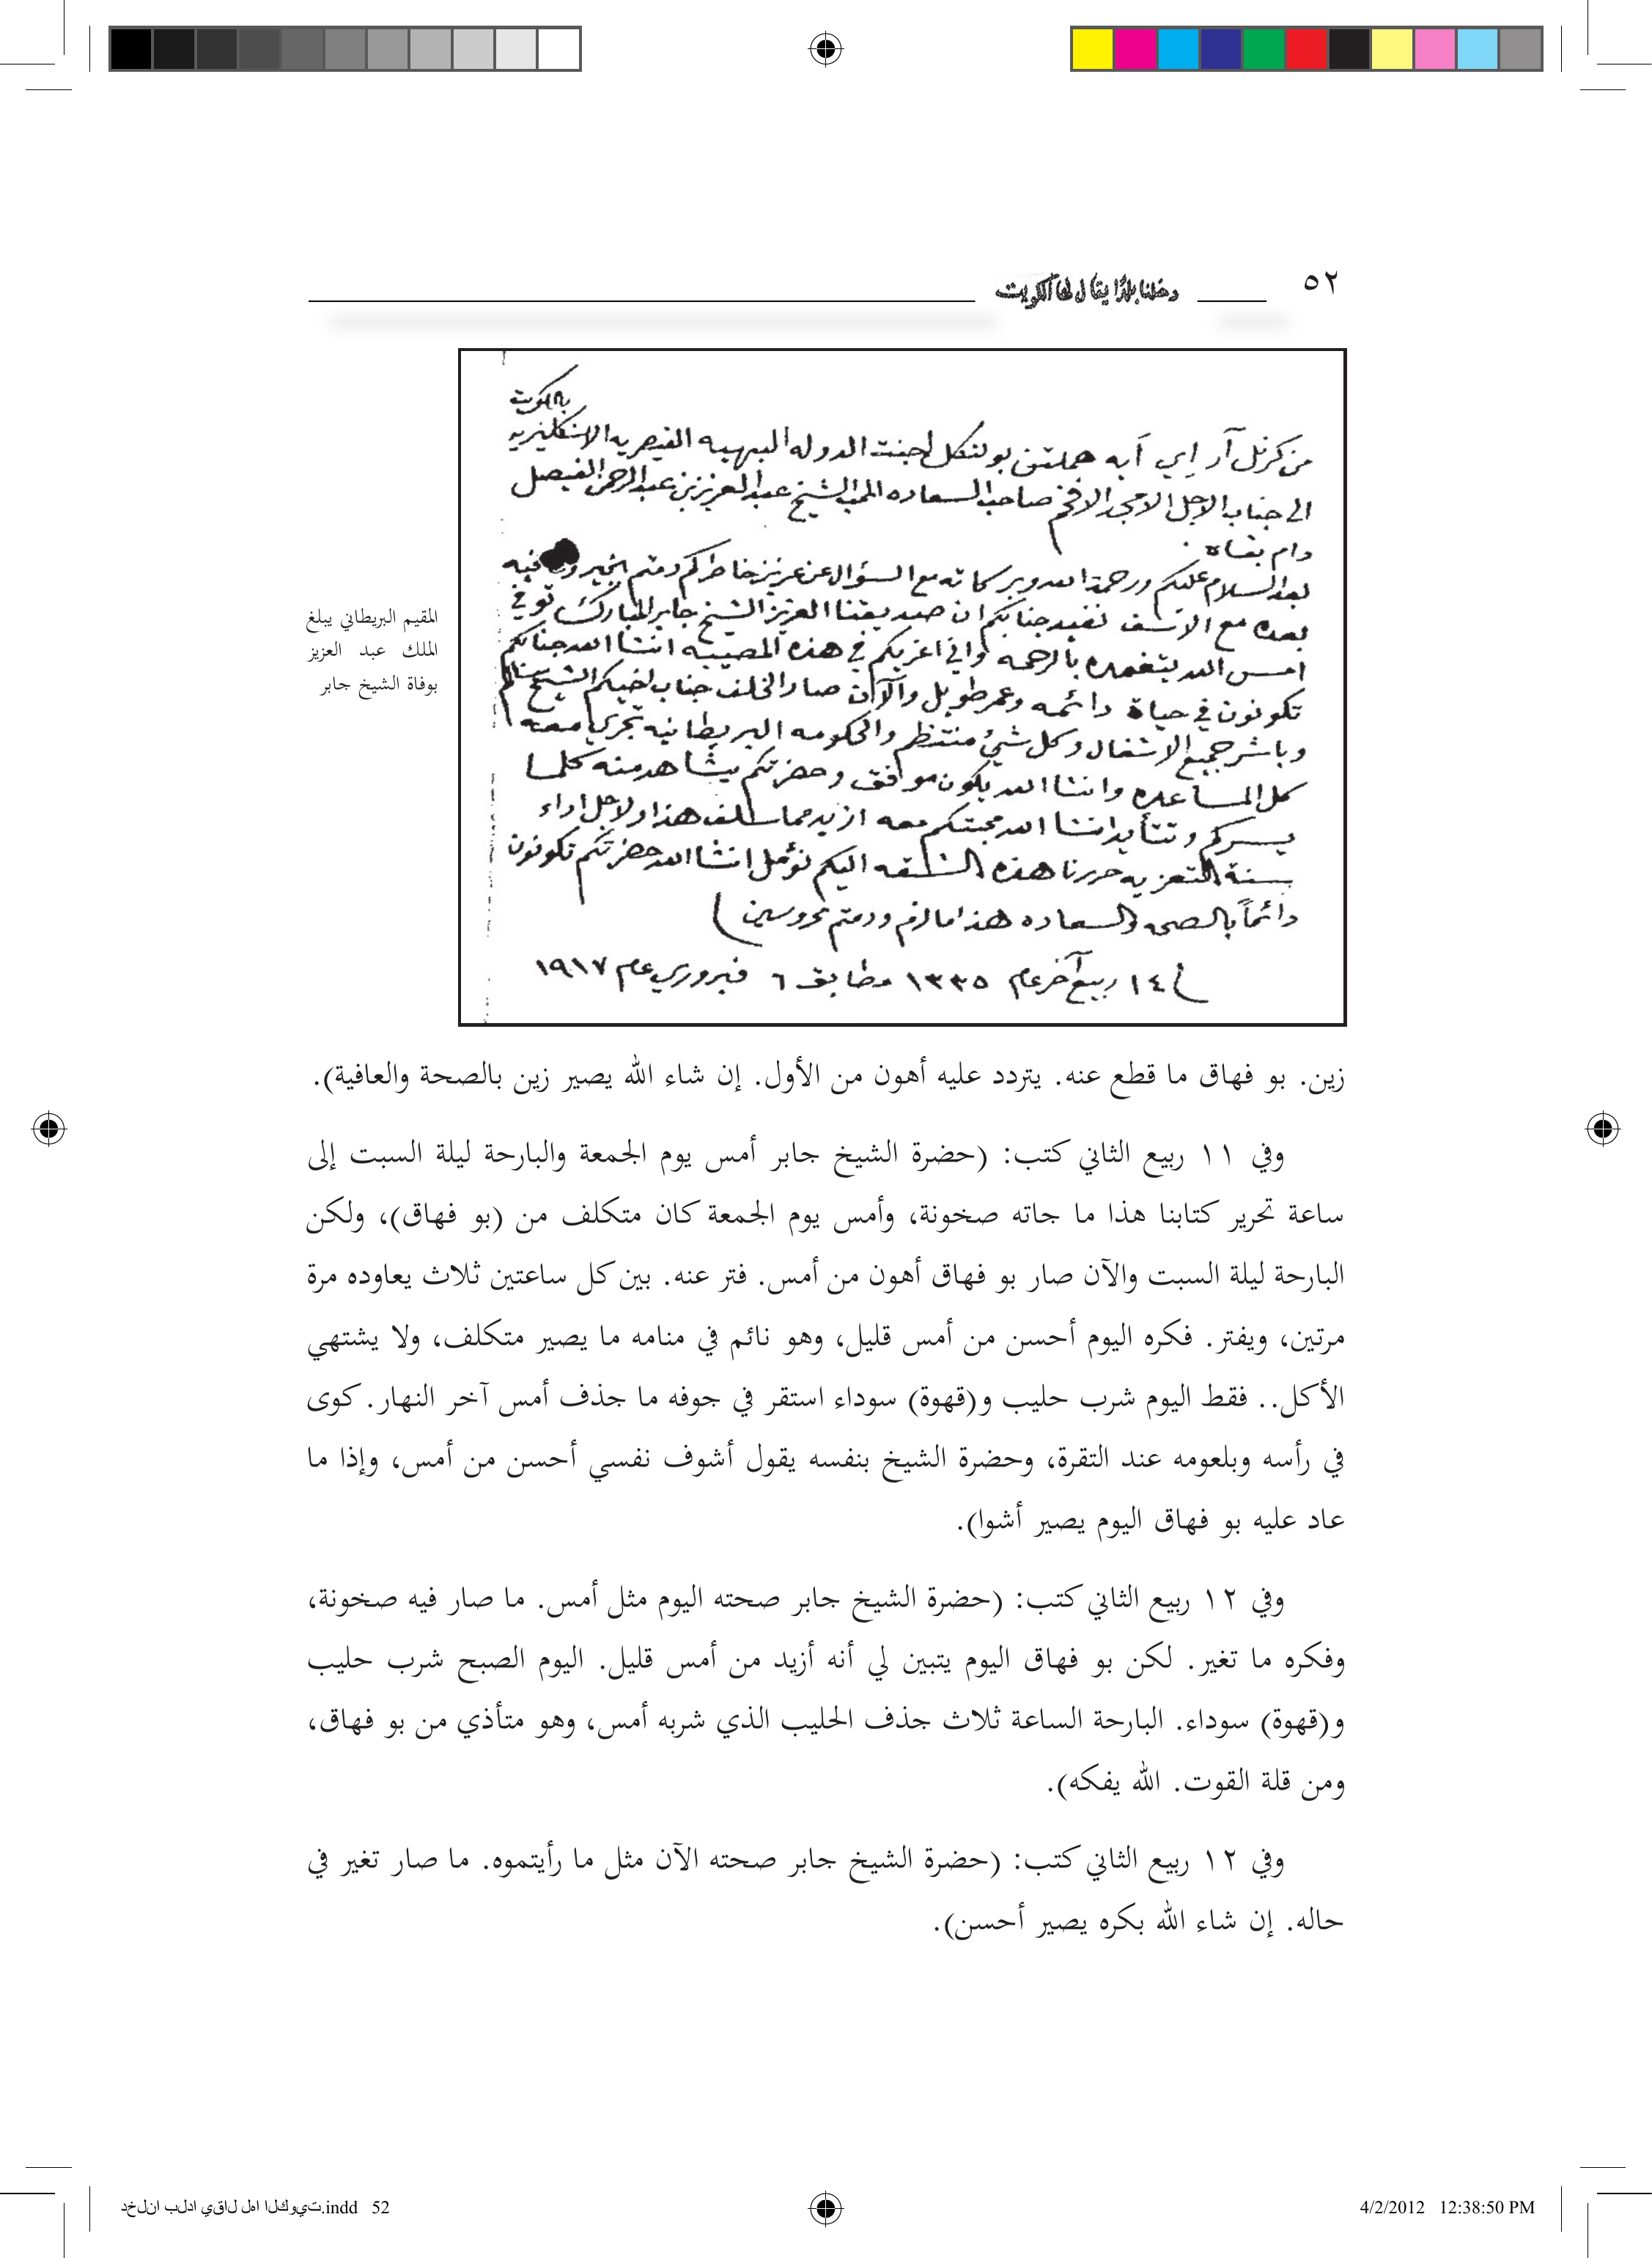 ٥٢
دخلنا بلدًا يقال لها الكويت
بالكويت
من كرنل آر إي أيه هملتن بولتكل اجنت الدوله البهيه القيصريه الانكليزيه
الى جناب الاجل الامجد الافخم صاحب السعاده المحب الشيخ عبدالعزيز بن عبدالرحمن الفيصل
دام بقاه
بعد السلام عليكم ورحمة الله وبركاته مع السؤال عن عزيز خاطركم دمتم بخير وعافيه
بعده مع الاسف نفيد جنابكم ان صديقنا العزيز الشيخ جابر المبارك توفي
امس الله يتغمده بالرحمه واني اعزيكم في هذه المصيبه انشا الله جنابكم
تكونون في حياة دائمه وعمر طويل والآن صار الخلف جناب اخيكم الشيخ سالم
وباشر جميع الاشغال وكل شئ منتظم والحكومه البريطانيه تجري معه
كل المساعده وانشا الله يكون موافق وحضرتكم يشاهد منه كلما
يسركم وتتأيد انشا الله محبتكم معه ازيد مما سلف هذا ولاجل اداء
سنة التعزيه حررنا هذه الشقه اليكم نؤمل انشا الله حضرتكم تكونون
دائماً بالصحه والسعاده هذا ما لزم ودمتم محروسين
١٤ ربيع آخر عام ١٣٣٥ مطابق ٦ فبروري عام ١٩١٧
المقيم البريطاني يبلغ
الملك عبد العزيز
بوفاة الشيخ جابر
زين. بو فهاق ما قطع عنه. يتردد عليه أهون من الأول. إن شاء الله يصير زين بالصحة والعافية).
وفي ١١ ربيع الثاني كتب: (حضرة الشيخ جابر أمس يوم الجمعة والبارحة ليلة السبت إلى
ساعة تحرير كتابنا هذا ما جاته صخونة، وأمس يوم الجمعة كان متكلف من (بو فهاق)، ولكن
البارحة ليلة السبت والآن صار بو فهاق أهون من أمس. فتر عنه. بين كل ساعتين ثلاث يعاوده مرة
مرتين، ويفتر. فكره اليوم أحسن من أمس قليل، وهو نائم في منامه ما يصير متكلف، ولا يشتهي
الأكل.. فقط اليوم شرب حليب و(قهوة) سوداء استقر في جوفه ما جذف أمس آخر النهار. كوى
في رأسه وبلعومه عند التقرة، وحضرة الشيخ بنفسه يقول أشوف نفسي أحسن من أمس، وإذا ما
عاد عليه بو فهاق اليوم يصير أشوا).
وفي ١٢ ربيع الثاني كتب: (حضرة الشيخ جابر صحته اليوم مثل أمس. ما صار فيه صخونة،
وفكره ما تغير. لكن بو فهاق اليوم يتبين لي أنه أزيد من أمس قليل. اليوم الصبح شرب حليب
و(قهوة) سوداء. البارحة الساعة ثلاث جذف الحليب الذي شربه أمس، وهو متأذي من بو فهاق،
ومن قلة القوت. الله يفكه).
وفي ١٢ ربيع الثاني كتب: (حضرة الشيخ جابر صحته الآن مثل ما رأيتموه. ما صار تغير في
حاله. إن شاء الله بكره يصير أحسن).
دخلنا بلدا يقال لها الكويت.indd 52
4/2/2012 12:38:50 PM